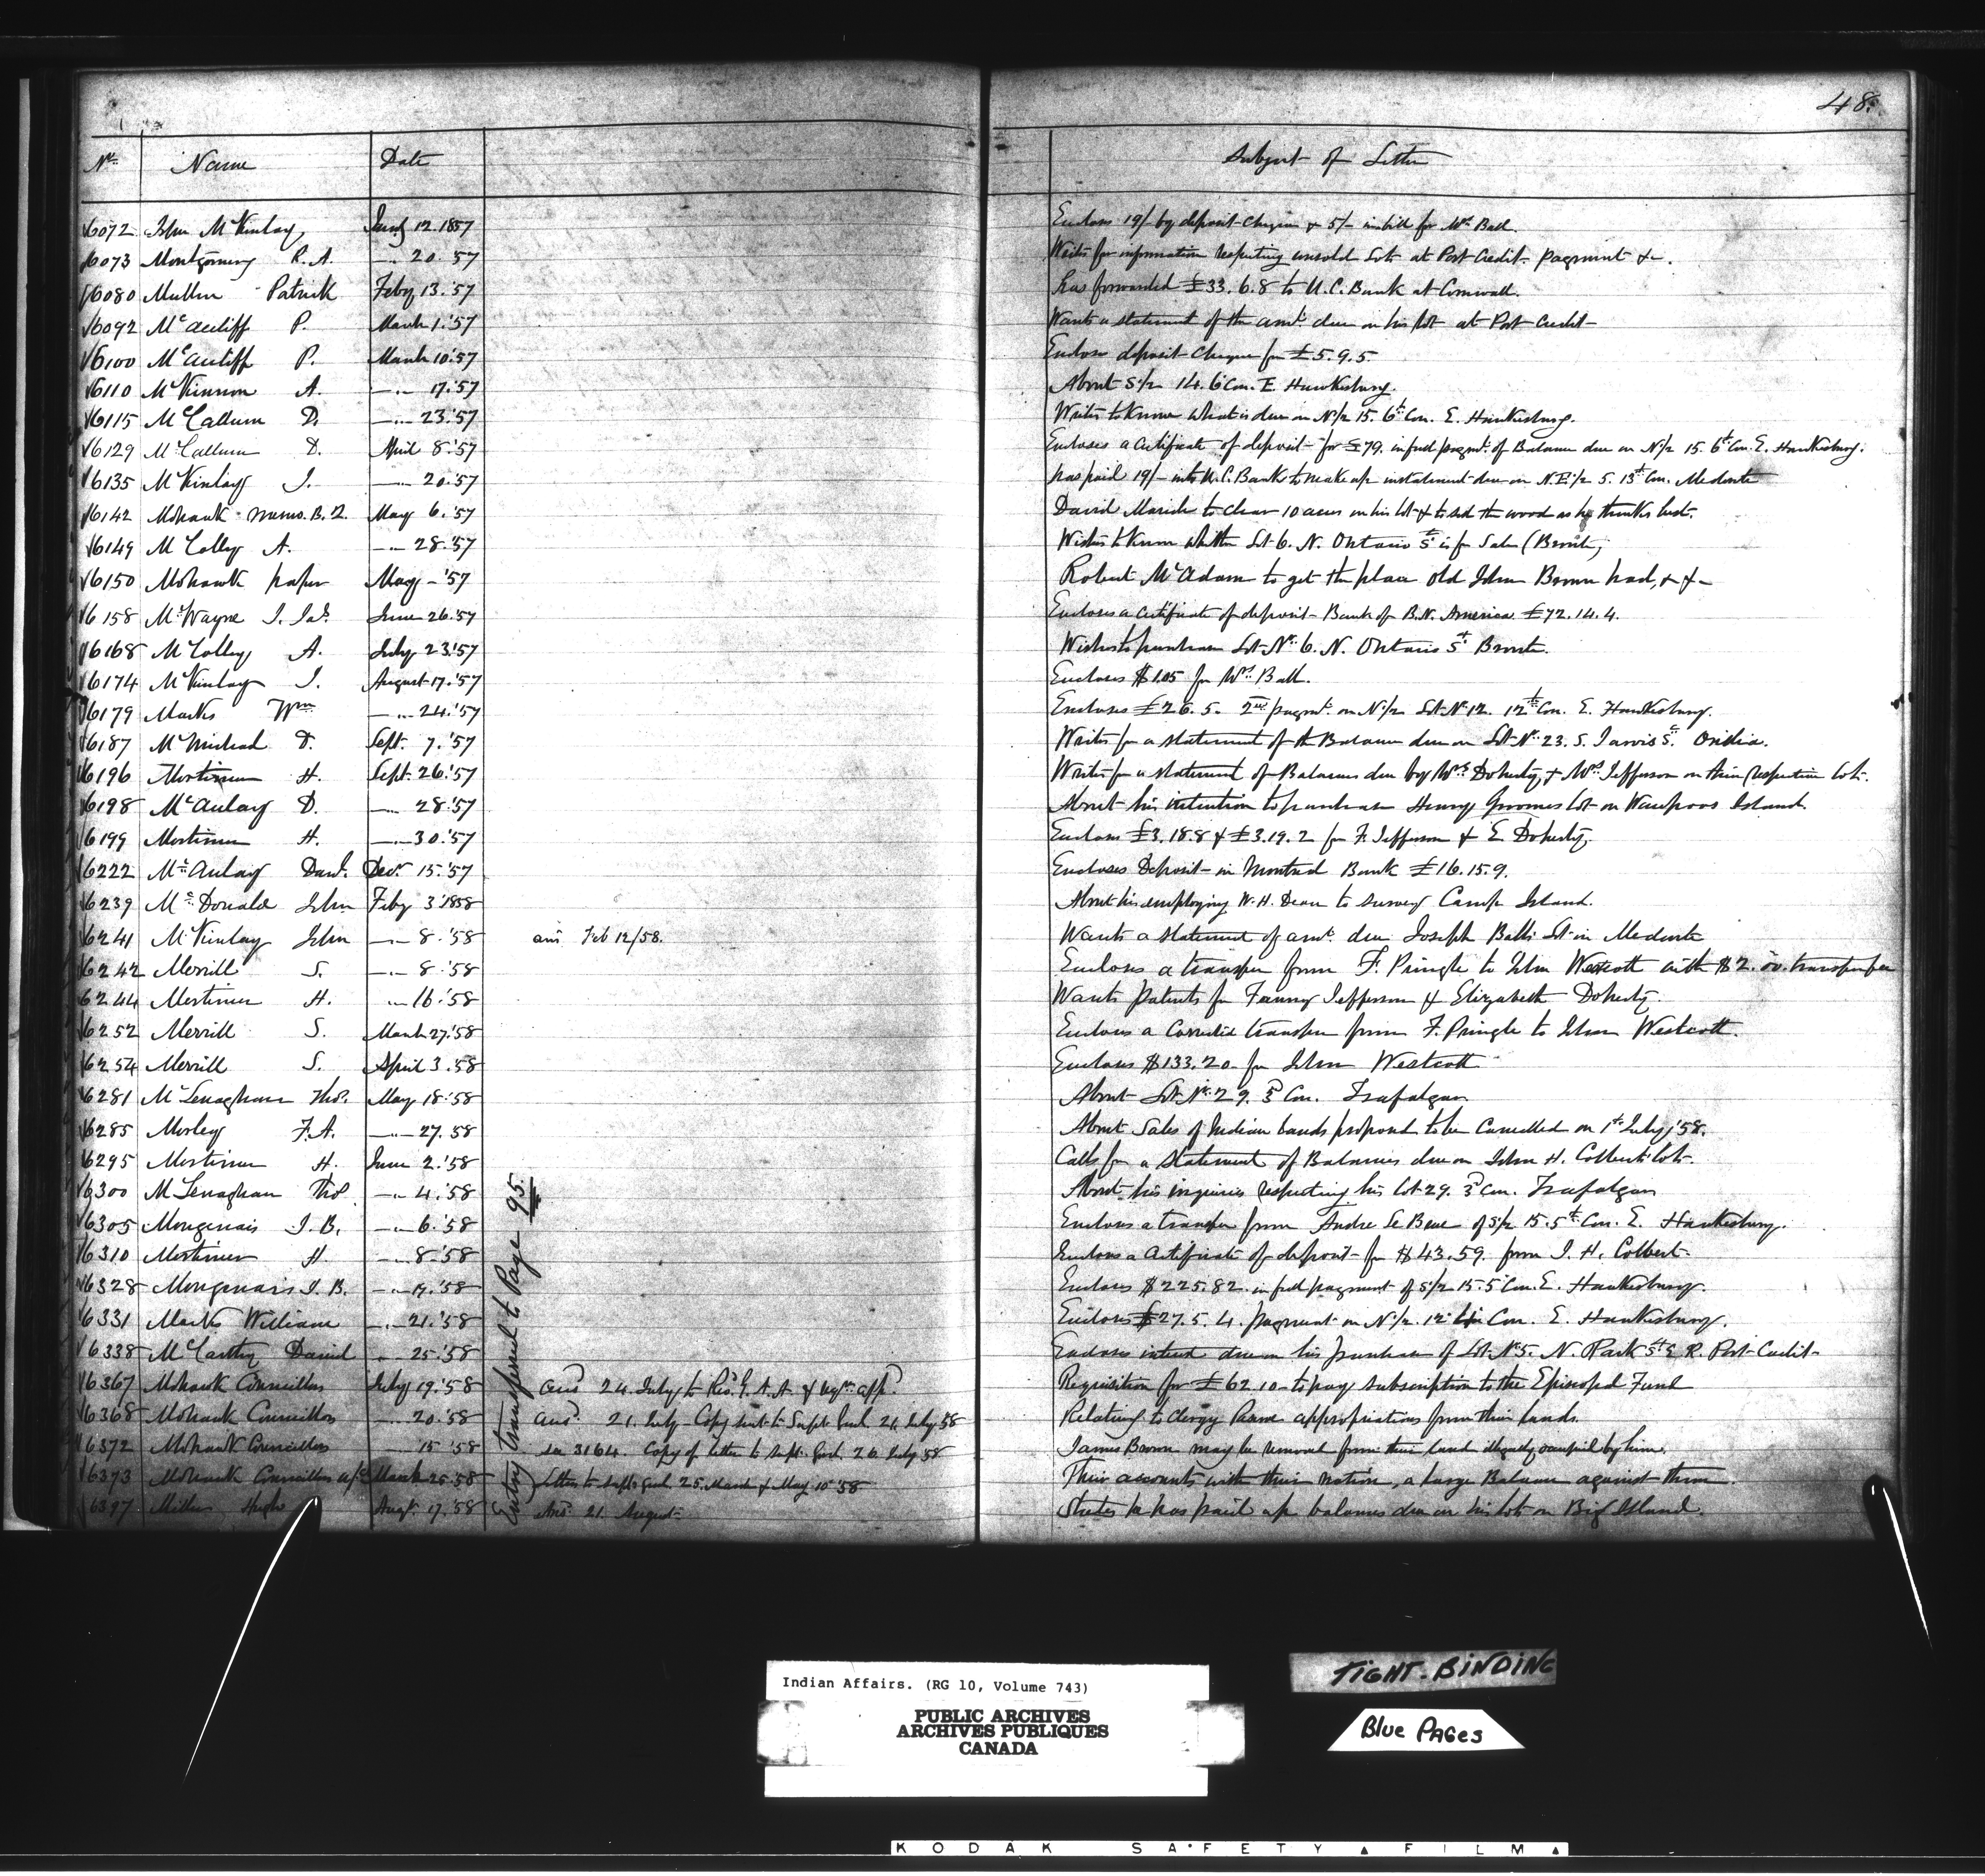 48.
No. Name Date Subject of Letter
6072 John McKinlay Jany 12. 1857 Encloses 19/- by deposit Cheque & 5/- in bill for Wm Ball.
6073 Montgomery R. A. " 20. '57 Writes for information respecting unsold Lots at Port Credit. payment &c.
6080 Mullen Patrick Feby 13. '57 has forwarded £33. 6. 8 to U. C. Bank at Cornwall.
6092 McAuliff P. March 1. '57 Wants a statement of the amt. due on his lot at Port Credit
6100 McAuliff P. March 10. '57 Encloses deposit Cheque for £5. 9. 5
6110 McKinnon A. " 17. '57 About S/2 14. 6 Con. E. Hawkesbury.
6115 McCallum D. " 23. '57 Writes to know what is due on N/2 15. 6th Con. E. Hawkesbury.
6129 McCallum D. April 8. '57 Encloses a Certificate of deposit for £79. in full paymt. of Balance due on N/2 15. 6th Con. E. Hawkesbury.
6135 McKinlay J. " 20. '57 has paid 19/- into U. C. Bank to make up instalment due on N.E. 1/2 5. 13th Con. Medonte
6142 Mohawk memo. B. 2. May 6. '57 David Maricle to clear 10 acres on his lot & to sell the wood as he thinks best.
6149 McColley A. " 28. '57 Wishes to know whether Lot 6. N. Ontario St is for Sale (Bronte)
6150 Mohawk paper May - '57 Robert McAdam to get the place old John Brown had, & &
6158 McWayne J. Jas. June 26. '57 Encloses a Certificate of deposit Bank of B. N. America £72. 14. 4.
6168 McColley A. July 23. '57 Wishes to purchase Lot No. 6. N. Ontario St. Bronte.
6174 McKinlay J. August 17. '57 Encloses $1.05 for Wm Ball.
6179 Marks Wm " 24. '57 Encloses £26. 5. 2nd paymt. on N/2 Lot No 12. 12th Con. E. Hawkesbury.
6187 McMichael D. Sept. 7. '57 Writes for a statement of the Balance due on Lot No. 23. S. Jarvis St. Orillia.
6196 Mortimer H. Sept. 26. '57 Writes for a statement of Balances due by Mrs Doherty & Mrs Jefferson on their respective lots.
6198 McAulay D. " 28. '57 About his intention to purchase Henry Grooms lot on Waupoos Island.
6199 Mortimer H. " 30. '57 Encloses £3. 18. 8 & £3. 19. 2 for F. Jefferson & E. Doherty.
6222 McAulay Danl. Decr 15. '57 Encloses Deposit in Montreal Bank £16. 15. 9.
6239 McDonald John Feby 3 1858 About his employing W. H. Dean to survey Camp Island.
6241 McKinlay John " 8. '58 ans Feb 12/58. Wants a statement of amt. due Joseph Ball's Lot in Medonte
6242 Merrill S. " 8 '58 Encloses a transfer from F. Pringle to John Westcott with $2.00 transfer fee
6244 Mortimer H. " 16. '58 Wants patents for Fanny Jefferson & Elizabeth Doherty.
6252 Merrill S. March 27. '58 Encloses a Corrected transfer from F. Pringle to John Westcott.
6254 Merrill S. April 3. 58 Encloses $133.20 for John Westcott
6281 McLenaghan Thos. May 18. '58 About Lot No. 29. 3d Con. Trafalgar
6285 Morley F. A. " 27. 58 About Sales of Indian lands proposed to be Cancelled on 1st July, '58.
6295 Mortimer H. June 2. '58 Calls for a statement of Balances due on John H. Colbert's lots.
6300 McLenaghan Thos " 4. '58 About his inquiries respecting his lot 29. 3d Con. Trafalgar
6305 Mongenais J. B. " 6. '58 Encloses a transfer from Andre Le Beau of S/2 15. 5th Con. E. Hawkesbury.
6310 Mortimer H. " 8. '58 Encloses a Certificate of deposit for $43.59. from J. H. Colbert.
6328 Mongenais J. B. " 17. '58 Encloses $225.82. in full payment of S/2 15. 5 Con. E. Hawkesbury.
6331 Marks William " 21. '58 Encloses £27. 5. 4. payment on N/2. 12 Con. E. Hawkesbury.
6338 McCarthy Daniel " 25. '58 Encloses interest due on his purchase of Lot No 5. N. Park St E. R. Port Credit
6367 Mohawk Councillors July 19. '58 ansd 24. July to Requisition for £62. 10 to pay subscription to the Episcopal Fund
6368 Mohawk Councillors " 20. '58 ansd. 21. July Copy sent to Supt. Genl. 24 July 58 Relating to Clergy Reserve appropriations from their lands.
6372 Mohawk Councillors " 15 '58 see 3164. Copy of letter to Supt. Genl. 26 July 58 James Brown may be removed from their land illegally occupied by him.
6373 Mohawk Councillors a/c March 25. '58 Letters to Supt Genl. 25. March & May 10 '58 Their accounts with their nation, a large Balance against them.
6397 Miller Hugh Augt. 17. '58 Ans. 21. August States he has paid up balances due on his lots on Big Island.
Entry transferred to Page 95.
Indian Affairs. (RG 10, Volume 743)
PUBLIC ARCHIVES
ARCHIVES PUBLIQUES
CANADA
TIGHT-BINDING
Blue PAGes
KODAK SAFETY FILM